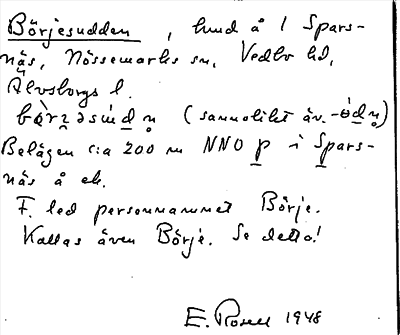 Börjesudden, hmd å 1 Spars-
näs, Nössemarks sn, Vedbo hd,
Älvsborgs l.
bǫ̀rʒəsúdn̥ (sannolikt äv. -ødn̥)
Belägen c:a 200 m NNO p i Spars-
näs å ek.
F. led personnamnet Börje.
Kallas även Börje. Se detta!
E. Rosell 1948